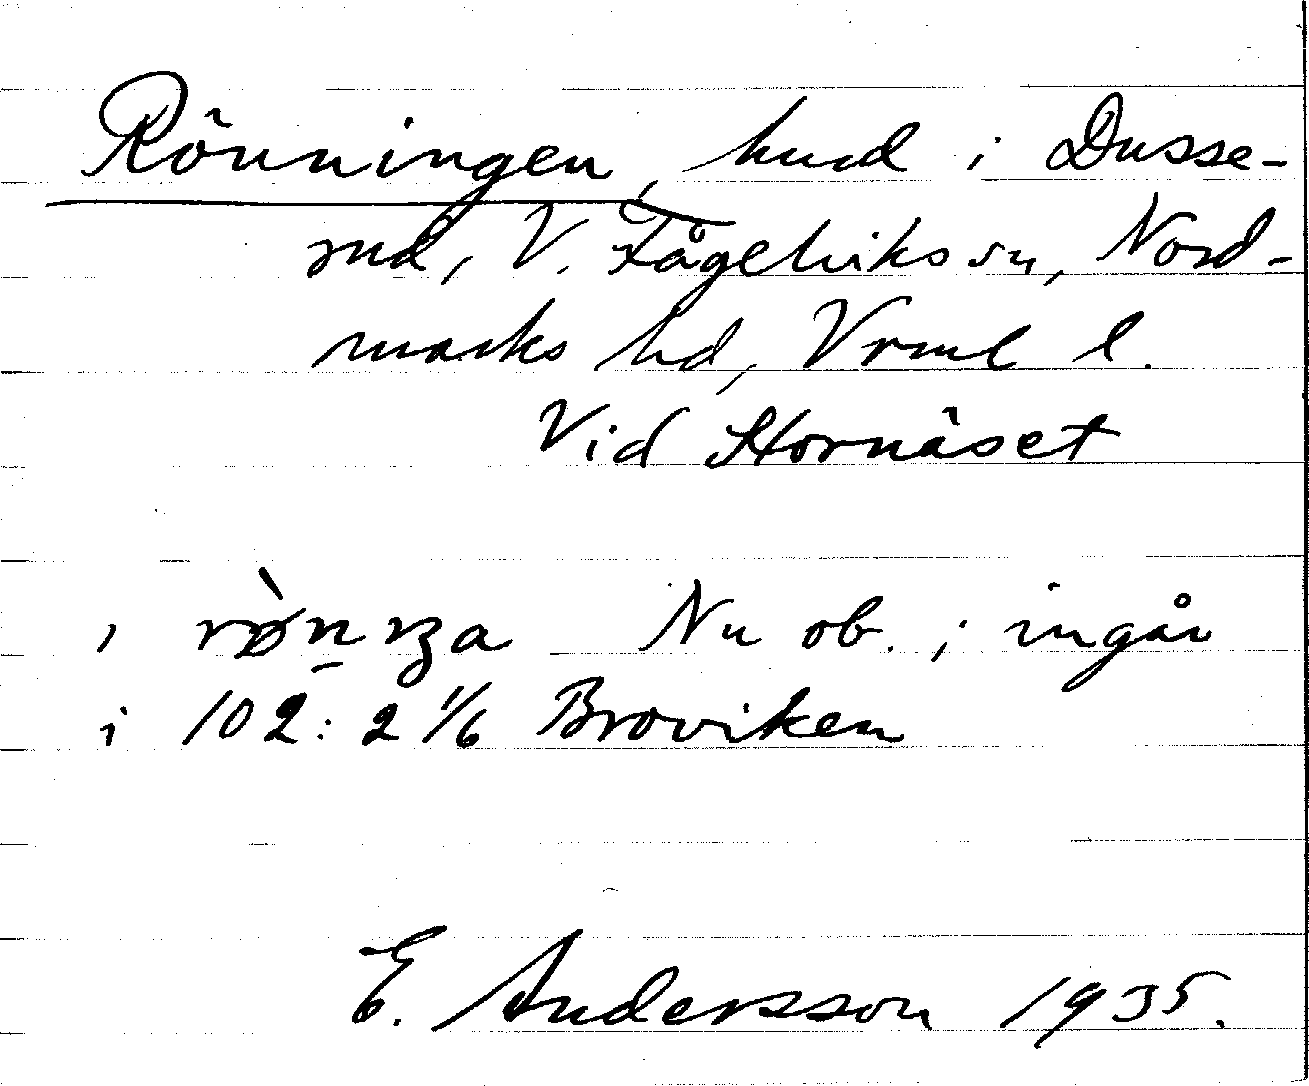 Rönningen, hmd i Dusse-
rud, V. Fågelviks sn, Nord-
marks hd, Vrml l.
Vid Hornäset
i Nu ob.; ingår
i 102:2 1/6 Broviken
E. Andersson 1935.